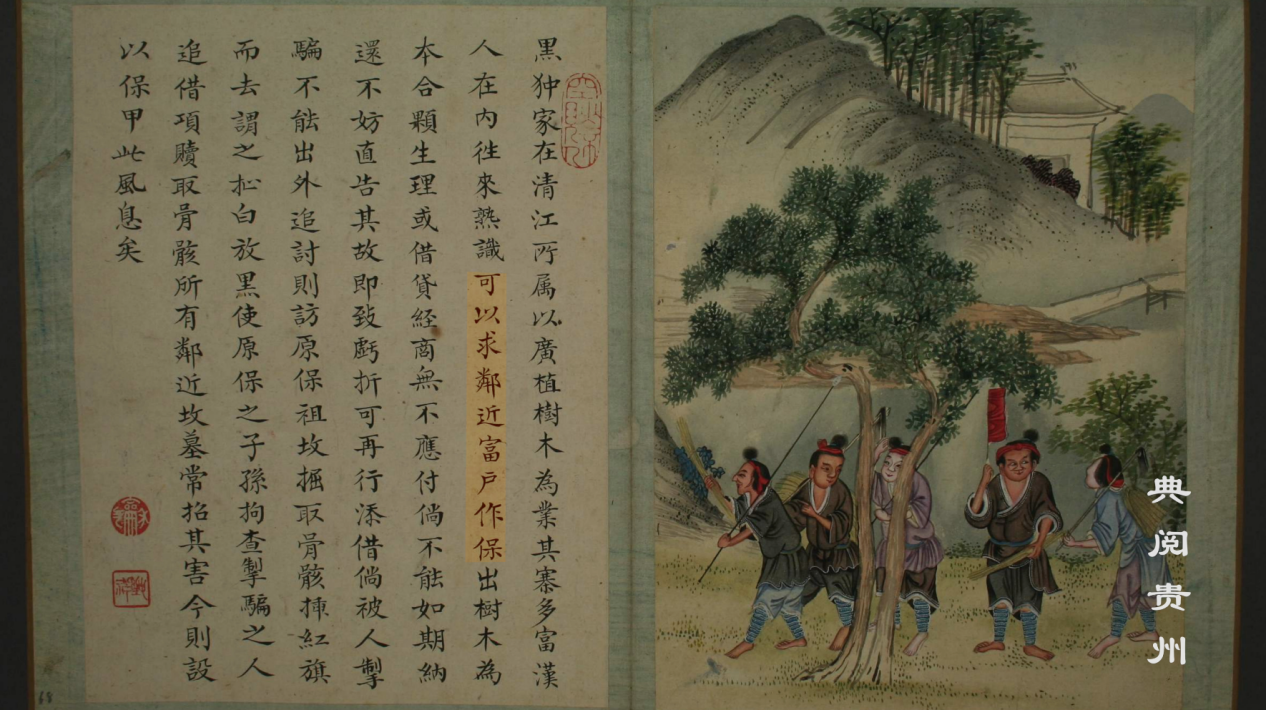 黒狆家在清江所属以廣植樹木為業其寨多富漢
人在内徃來熟識可以求鄰近富戶作保出樹木為
本合顆生理或借貸経商無不應付倘不能如期納
還不妨直告其故即致虧折可再行添借倘被人掣
騙不能出外追討則訪原保祖坟掘取骨骸揷紅旗
而去謂之扯白放黒使原保之子孫拘查掣騙之人
追借項贖取骨骸所有鄰近坟墓常招其害今則設
以保甲此風息矣
典阅贵州
68